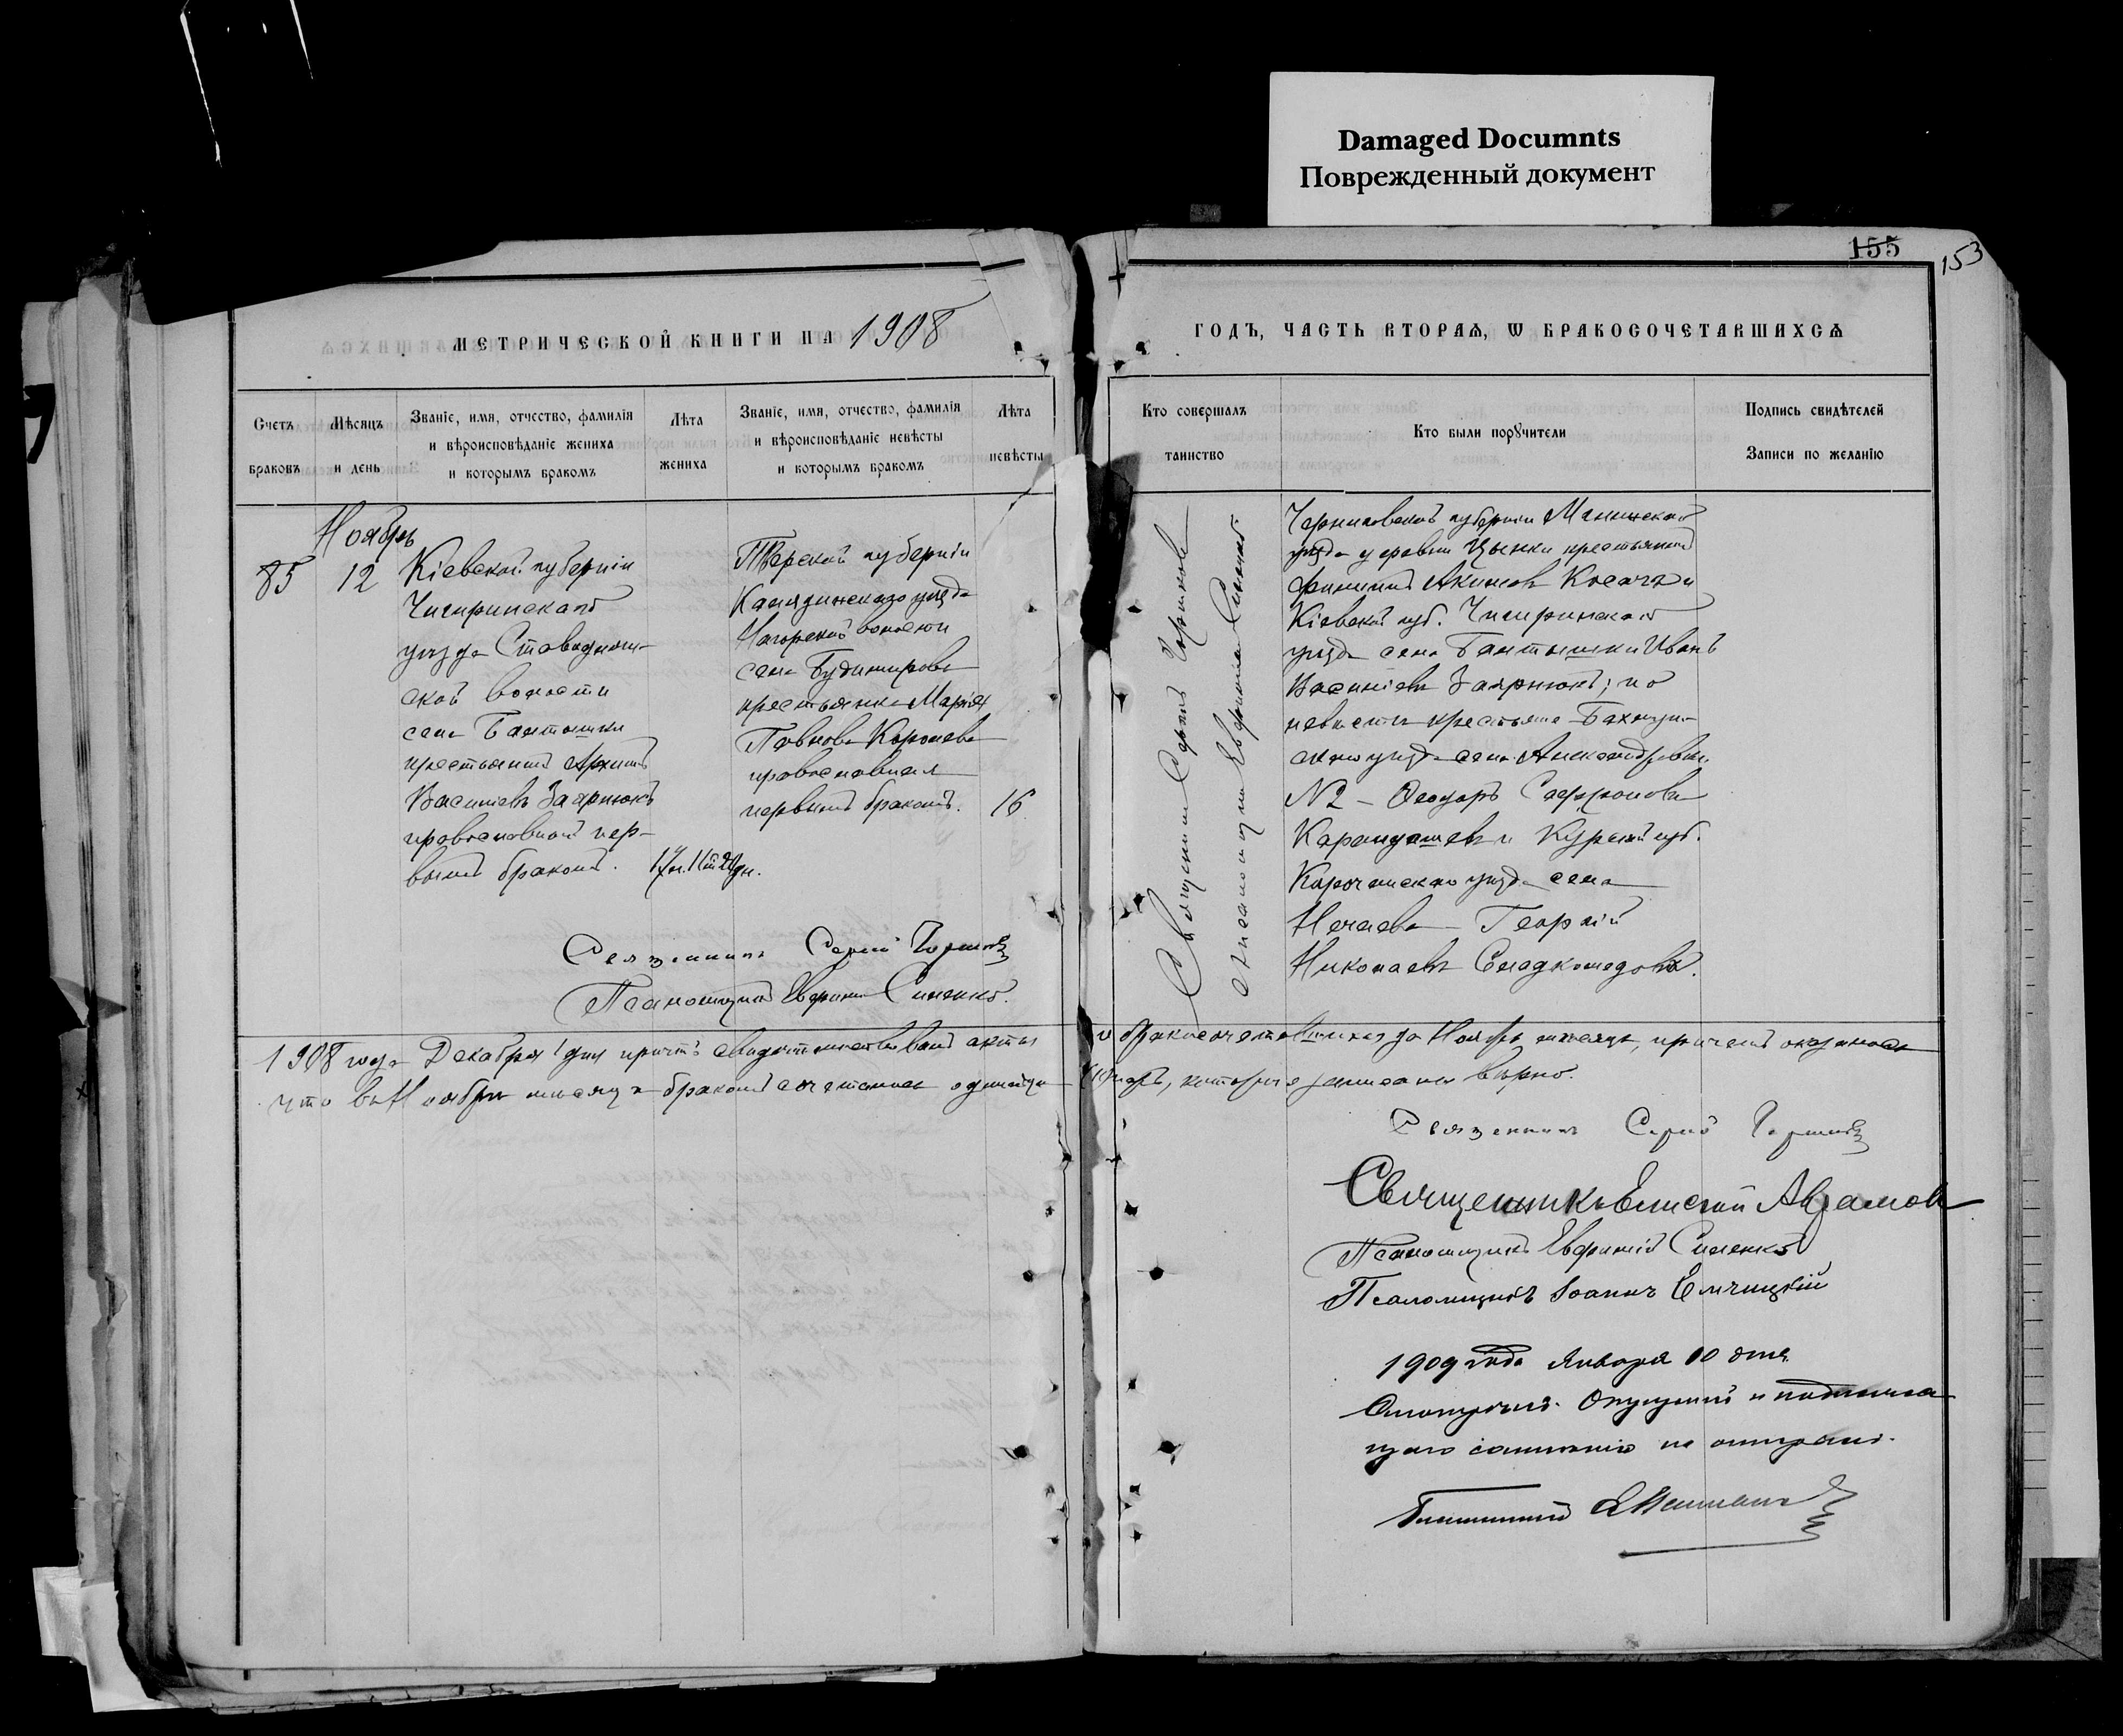 Damaged Documnts
Поврежденный документ
155
153
МЕТРИЧЕСКОЙ КНИГИ НА 1908
ГОДЪ, ЧАСТЬ ВТОРАѦ, Ѡ БРАКОСОЧЕТАВШИХСѦ
Счетъ браковъ
Мѣсяцъ и день
Званіе, имя, отчество, фамилія и вѣроисповѣданіе жениха и которымъ бракомъ
Лѣта жениха
Званіе, имя, отчество, фамилія и вѣроисповѣданіе невѣсты и которымъ бракомъ
Лѣта невѣсты
Кто совершалъ таинство
Кто были порꙋчители
Подпись свидѣтелей Записи по желанію
Ноябрь
85
12
Кіевской губерніи
Чигиринскаго
уѣзда Ставидлян-
ской волости
села Бантышки
крестьянинъ
Василіевъ Заярнюкъ
православный пер-
вымъ бракомъ.
Тверской губерніи
Калязинскаго уѣзда
Нагорской волости
села Будимирова
крестьянка Марія
Павлова Королева
православная
первымъ бракомъ.
16
Священникъ Сергій
Псаломщикъ Евфимій Сименко.
Священникъ Сергій
Псаломщикъ Евфимій
Черниговской губерніи
уѣзда деревни крестьянинъ
Акимовъ и
Кіевской губ. Чигиринскаго
уѣзда села Бантышки Иванъ
Василіевъ Заярнюкъ; по
невѣстѣ крестьяне Бахмут-
скаго уѣзда села Александровки
№2 – Ѳеодоръ
Карандашевъ и Курской губ.
Корочанскаго уѣзда села
Нечаева Георгій
Николаевъ
1908 года Декабря 1 дня причтъ свидѣтельствовалъ акты
о бракосочетавшихся за Ноябрь мѣсяцъ, причемъ оказалось
что въ Ноябрѣ мѣсяцѣ бракомъ сочеталось одинадца
паръ, которые записаны вѣрно.
Священникъ Сергій
Священникъ
Псаломщикъ Евфимій Сименко
Псаломщикъ Іоаннъ
1909 года Января 10 дня
Смотрѣлъ.